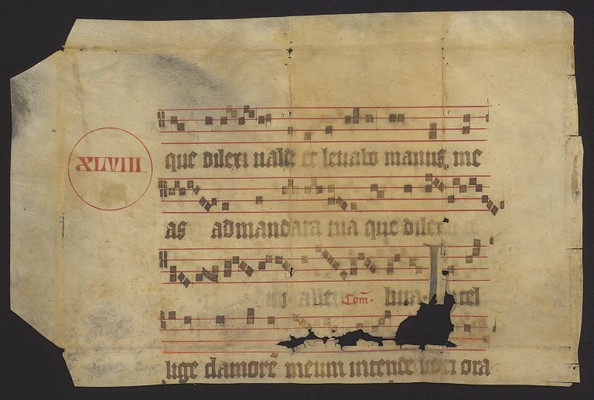 XLVIII
que dilexi ualde et leuabo manus me
as ad mandata tua que dilexi
Com̄
lige clamorē meum intende uoci ora